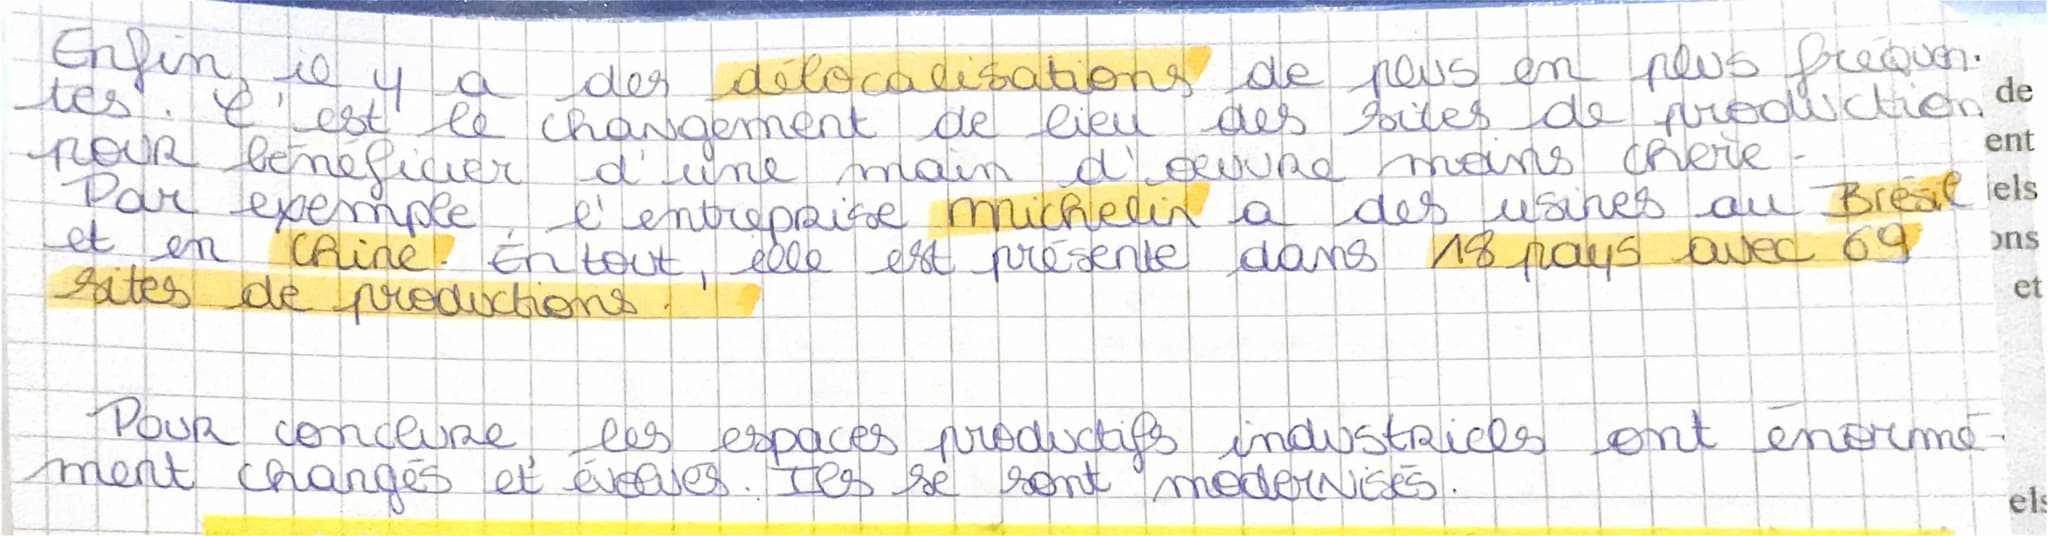 Enfin, il y a des délocalisations de plus en plus fréquen-
tes. C'est le changement de lieu des sites de production
pour bénéficier d'une main d'oeuvre moins chère.
Par exemple, l'entreprise Michelin a des usines au Brésil
et en Chine. En tout, elle est présente dans 18 pays avec 69
sites de productions.
Pour conclure, les espaces productifs industriels ont énormé-
ment changés et évolués. Ils se sont modernisés.
de
ent
iels
ons
et
els